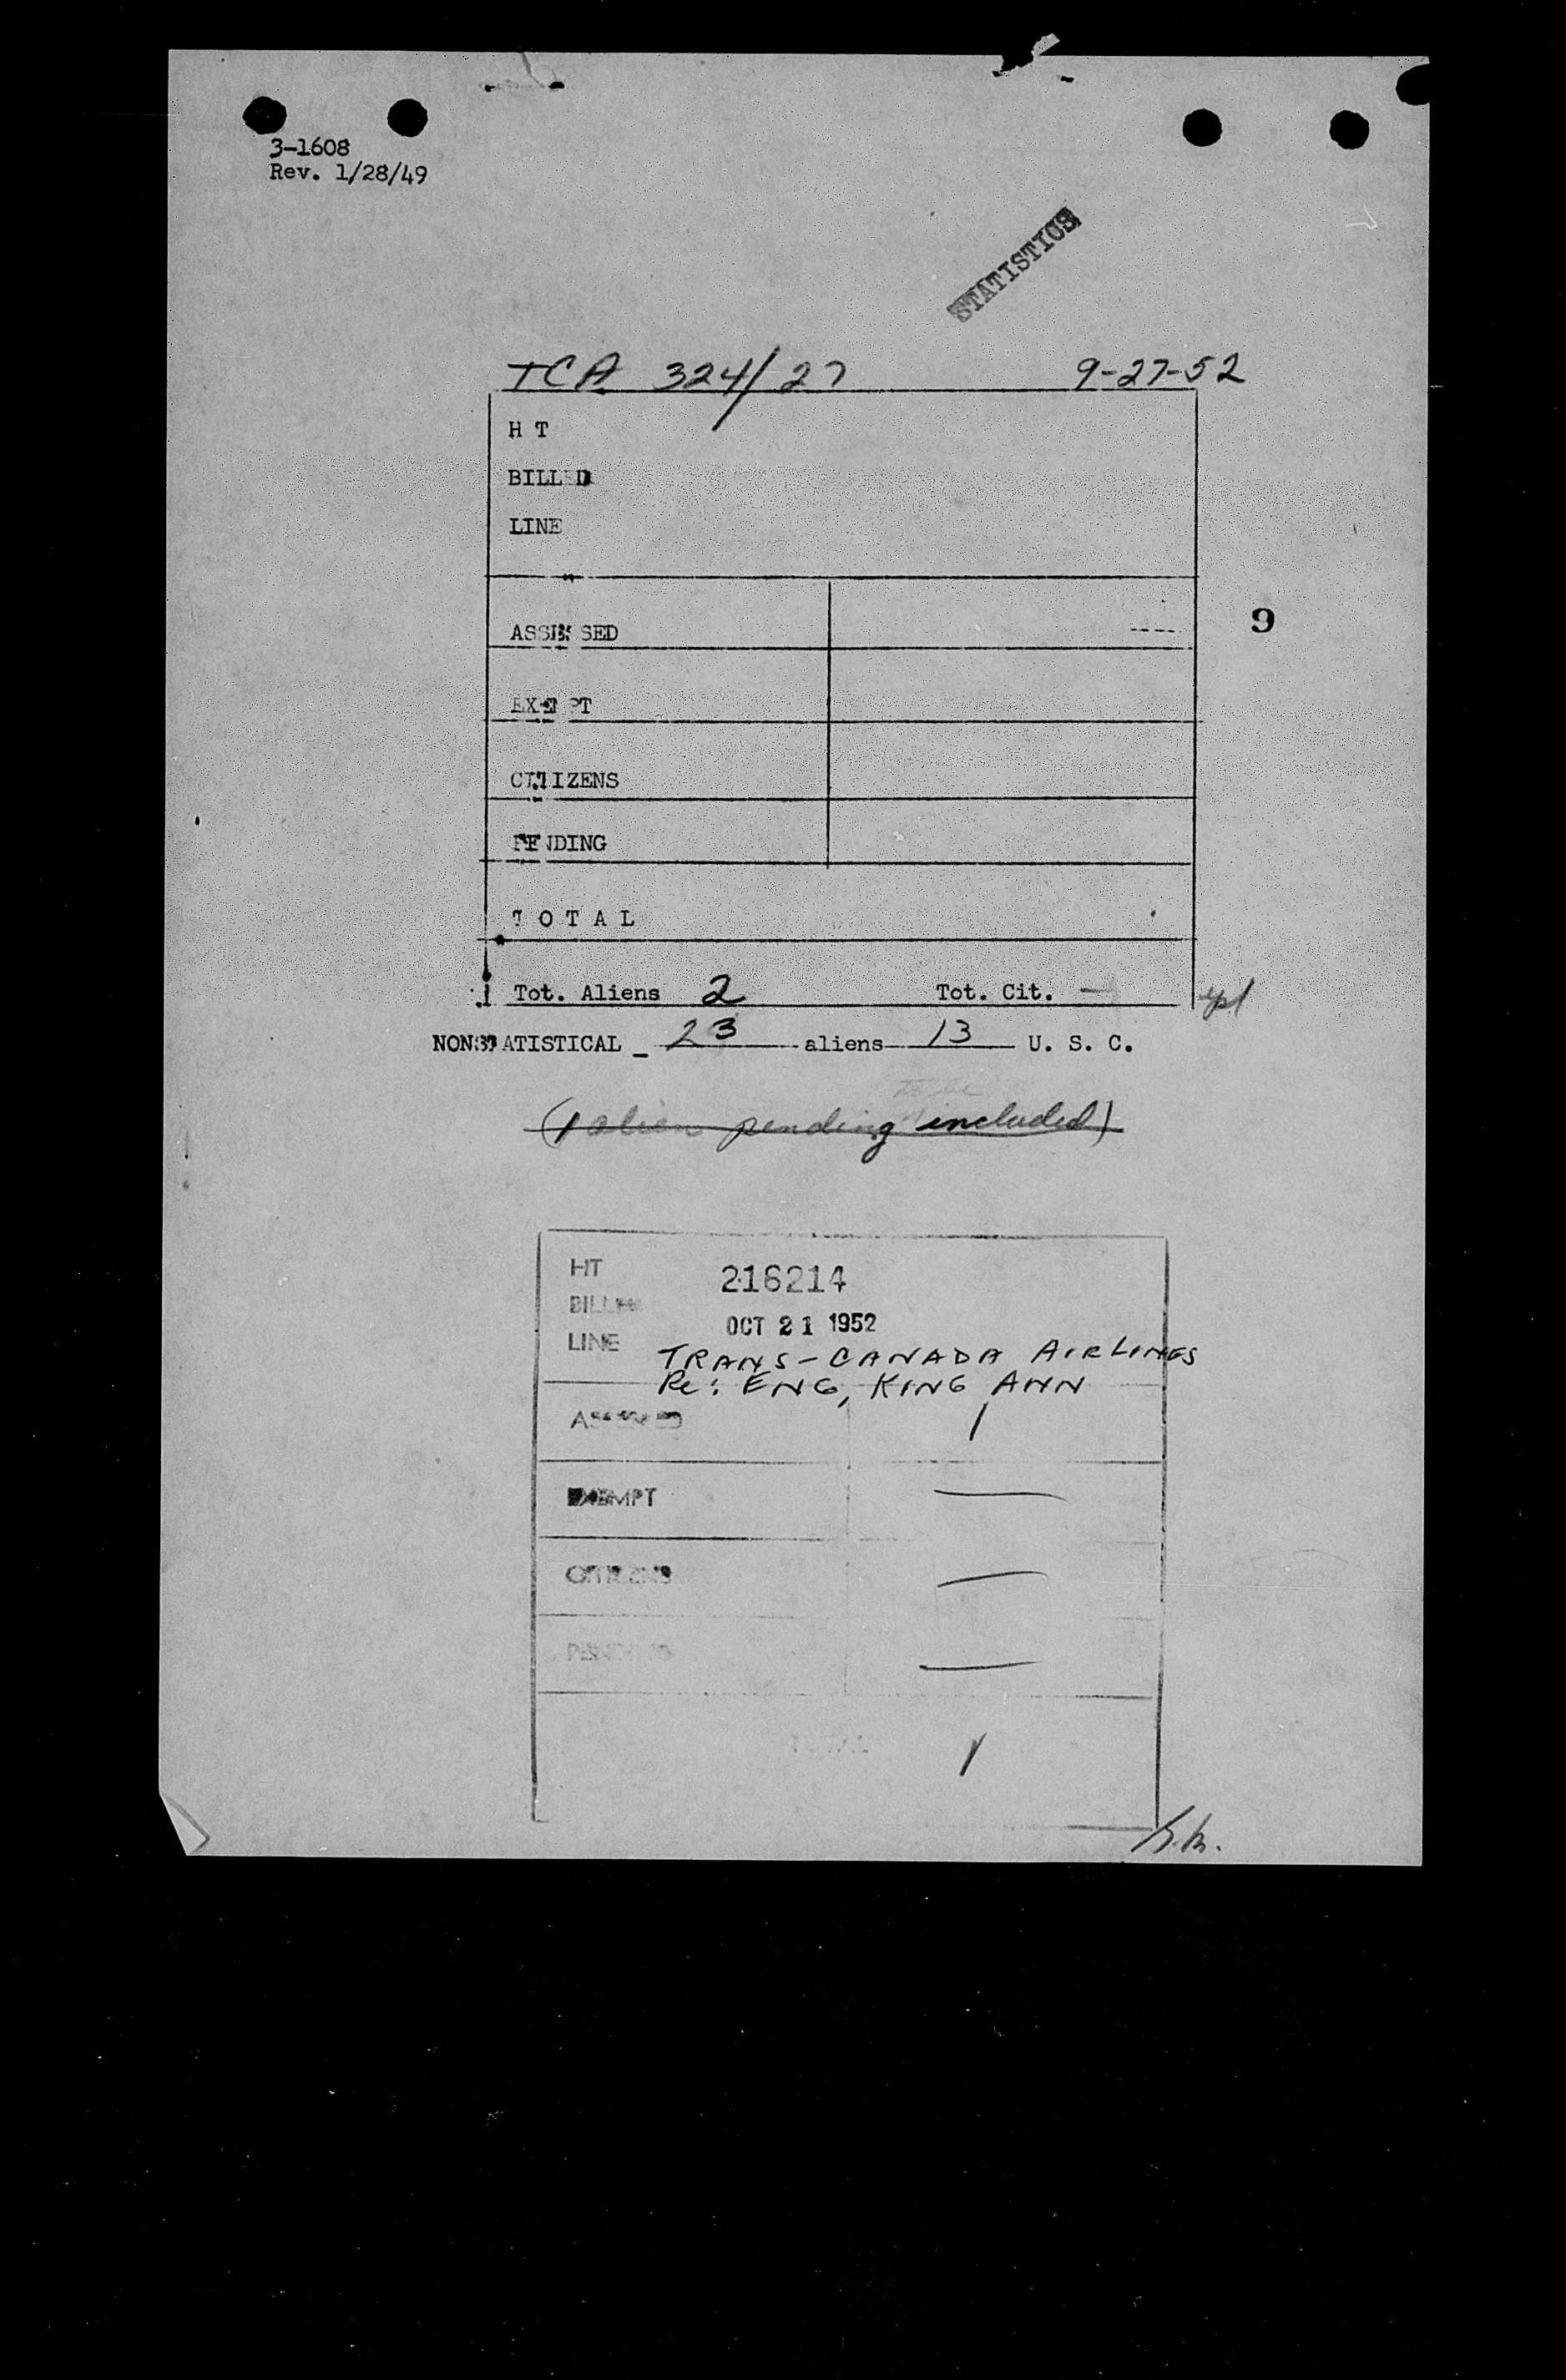 3-1608
Rev. 1/28/49
STATISTICS
TCA 324/27 9-27-52
H T
BILLED
LINE
9
ASSESSED ----
EXEMPT
CITIZENS
PENDING
T O T A L
Tot. Aliens 2 Tot. Cit. —
NONSTATISTICAL 23 aliens 13 U. S. C.
(1 alien pending included)
HT 216214
BILLED
OCT 21 1952
LINE
TRANS-CANADA AIRLINES
Re: ENG, KING ANN
ASSESSED 1
EXEMPT —
CITIZENS —
PENDING —
TOTAL 1